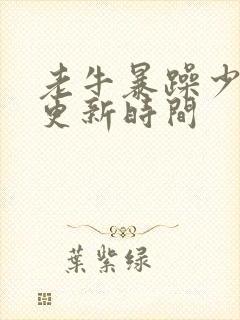 老牛暴躁少
更新時間
葉紫绿